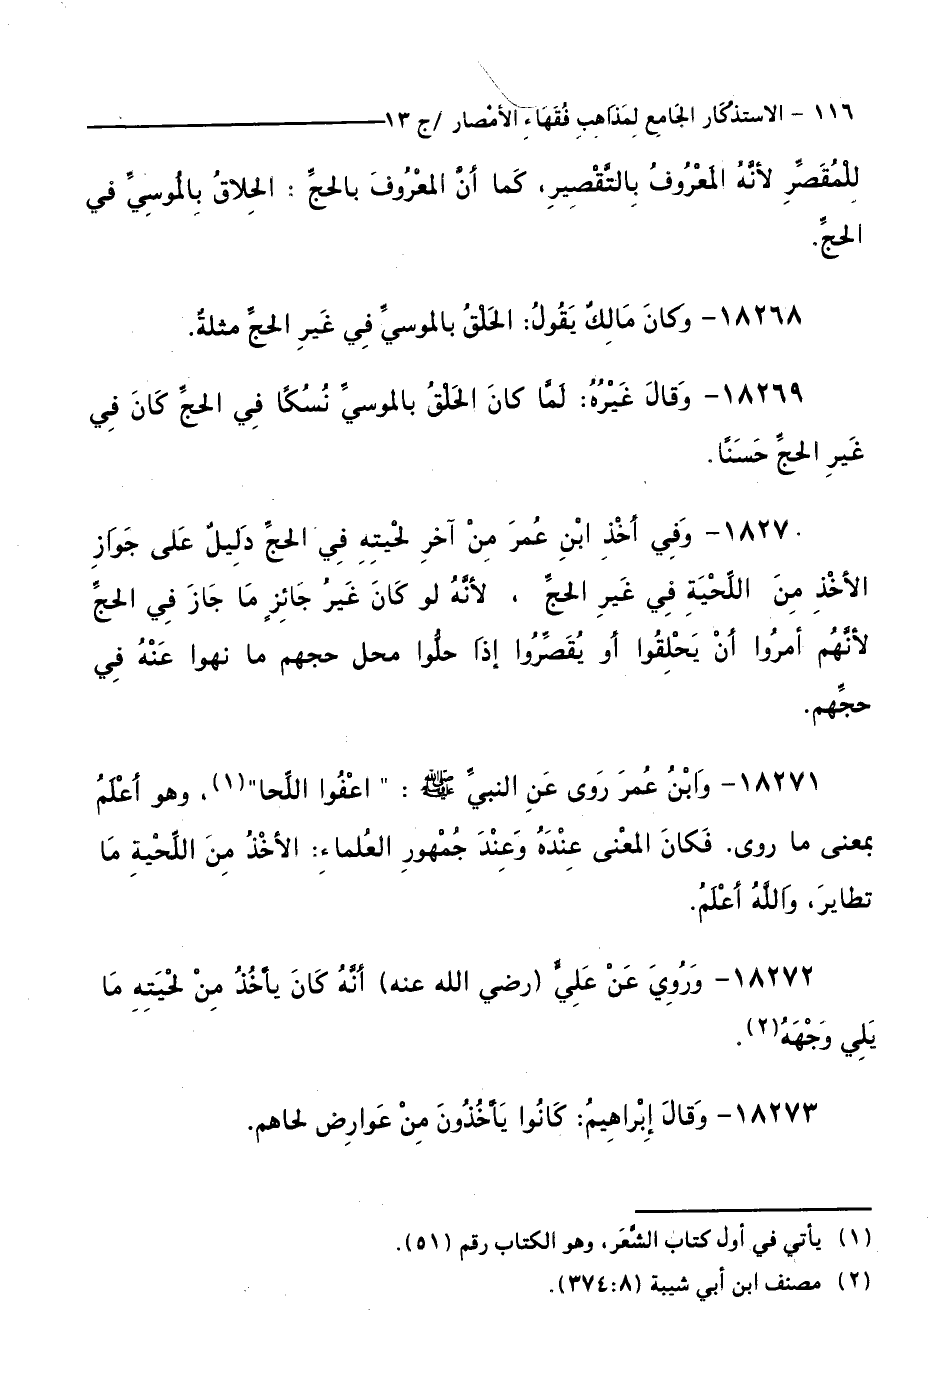 ١١٦ - الاستذكار الجَامع لِمَذاهِبِ فُقَهَاءِ الأمْصار /ج ١٣
لِلْمُقَصِّرِ لأنَّهُ المَعْرُوفُ بِالتَّقْصِيرِ، كَما أنَّ المعْرُوفَ بالحجِّ : الحِلاقُ بِالْموسِيِّ في
الحجِّ.
١٨٢٦٨- وكانَ مَالِكٌ يَقُولُ: الحَلْقُ بالموسيِّ فِي غَيرِ الحجِّ مثلةٌ.
١٨٢٦٩- وَقالَ غَيْرُهُ: لَمَّا كانَ الحَلْقُ بالموسيِّ نُسُكًا فِي الحجِّ كَانَ فِي
غَيرِ الحجِّ حَسَنًا.
١٨٢٧٠- وَفِي أخْذِ ابْنِ عُمرَ مِنْ آخرِ لحْيتِهِ فِي الحجِّ دَلِيلٌ عَلى جَوَازِ
الأخْذِ مِنَ اللَّحْيَةِ فِي غَيرِ الحجِّ ، لأنَّهُ لو كَانَ غَيرُ جَائزٍ مَا جَازَ فِي الحجِّ
لأنَّهُم أمرُوا أنْ يَحْلِقُوا أو يُقَصِّرُوا إذَا حلُّوا محل حجهم ما نهوا عَنْهُ فِي
حجِّهم.
١٨٢٧١- وَابْنُ عُمرَ رَوى عَنِ النبيِّ ﷺ : " اعْفُوا اللَّحا"(١)، وهو أعْلَمُ
بمعنى ما روى. فَكانَ المعْنى عِنْدَهُ وَعنْدَ جُمْهورِ العُلماءِ: الأخْذُ مِنَ اللَّحْيةِ مَا
تطايرَ، وَاللَّهُ أعْلَمُ.
١٨٢٧٢- وَرُوِيَ عَنْ عَلِيٍّ (رضي الله عنه) أنَّهُ كَانَ يأخُذُ مِنْ لحْيَتِهِ مَا
يَلِي وَجْهَهُ(٢).
١٨٢٧٣- وَقالَ إبْراهِيمُ: كَانُوا يَأخُذُونَ مِنْ عَوارِض لحاهم.
(١) يأتي في أول كتاب الشَّعَر، وهو الكتاب رقم (٥١).
(٢) مصنف ابن أبي شيبة (٣٧٤:٨).